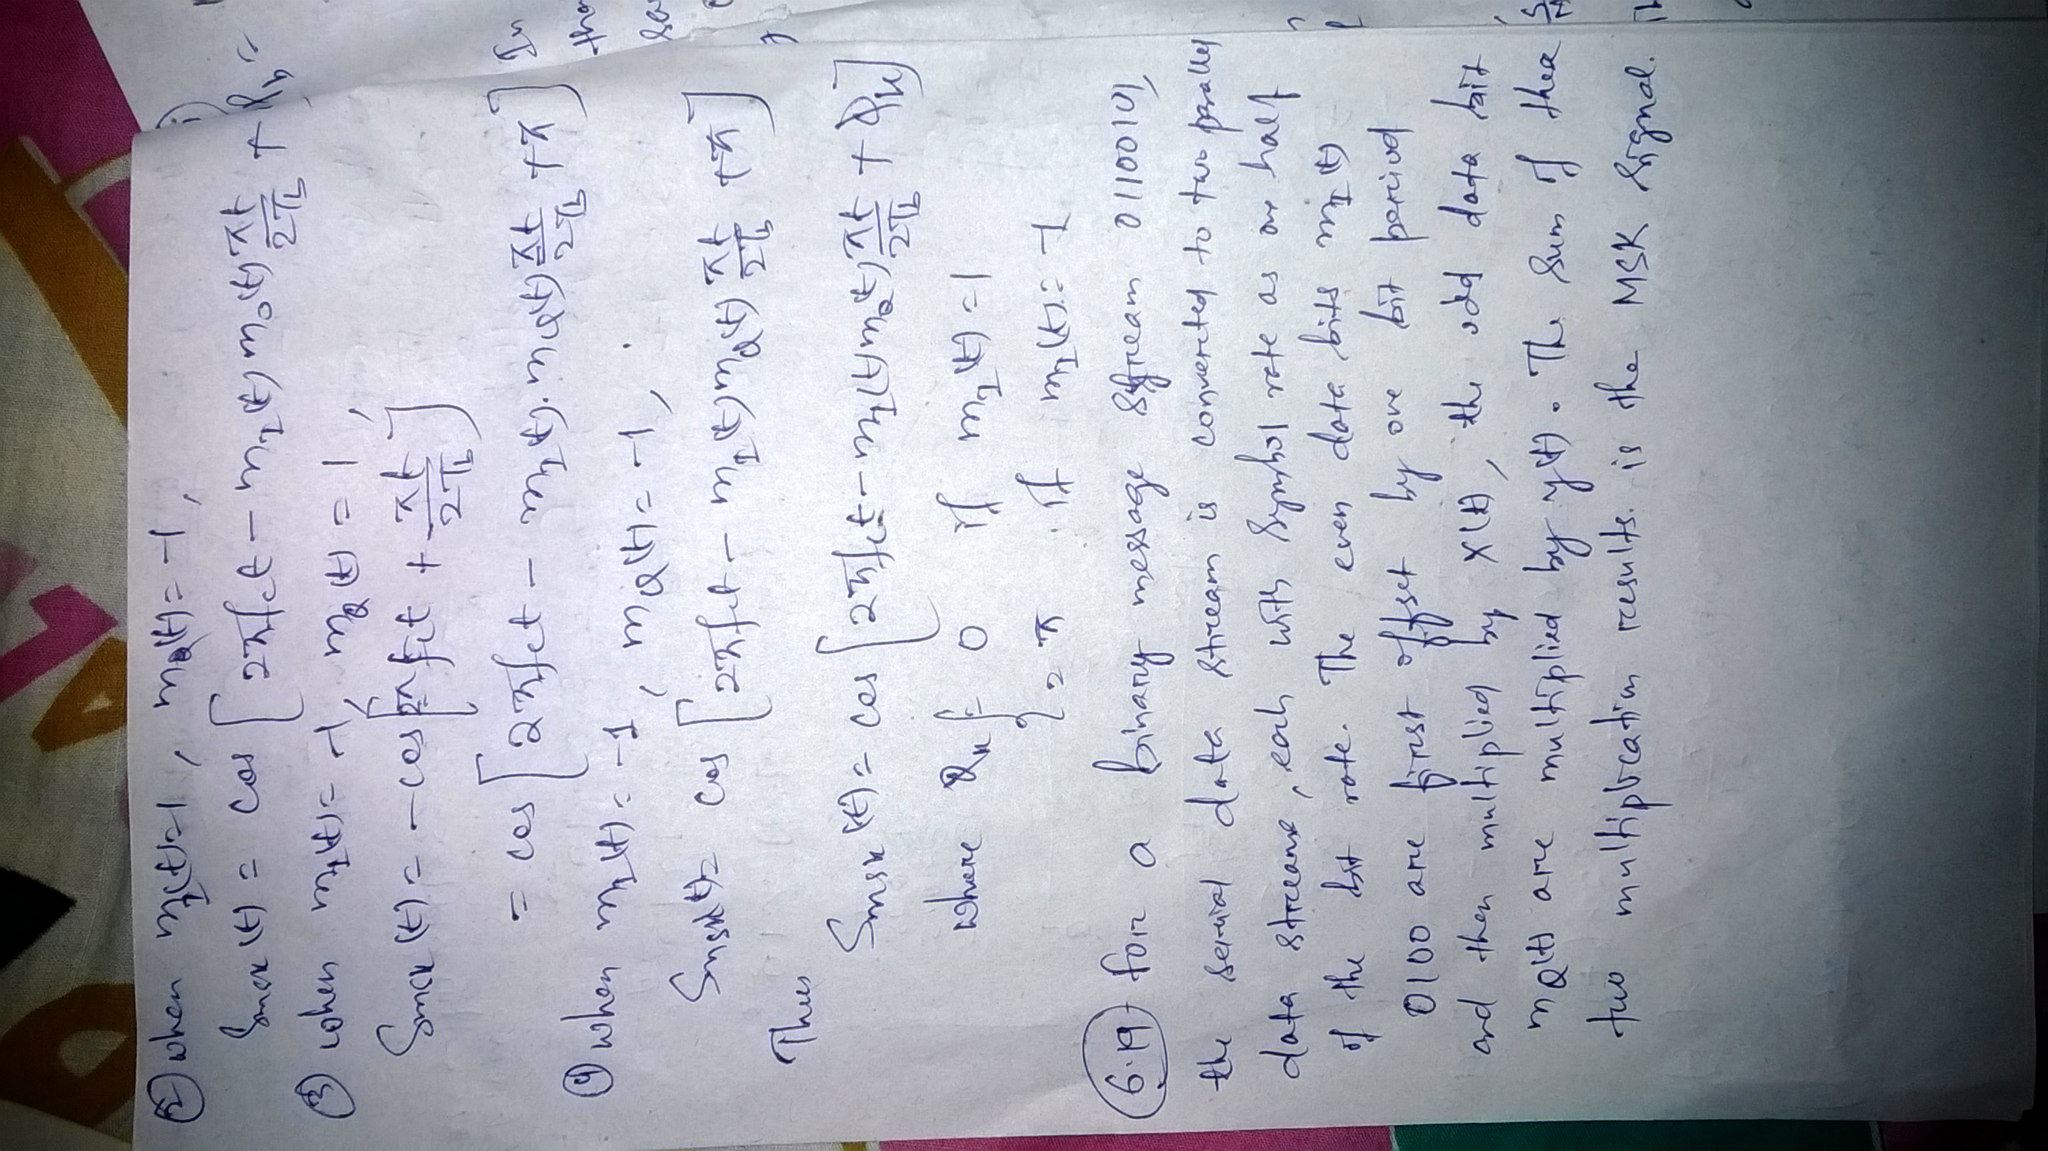 ② when m_I(t)=1, m_Q(t)=-1,
S_msk(t) = cos [2πfct - m_I(t) m_Q(t) πt/2T_b + φ_k]
③ when m_I(t)=-1, m_Q(t)=1,
S_msk(t) = -cos [2πfct + πt/2T_b]
= cos [2πfct - m_I(t).m_Q(t) πt/2T_b + π]
④ when m_I(t)=-1, m_Q(t)=-1,
S_msk(t)= cos [2πfct - m_I(t) m_Q(t) πt/2T_b + π]
Thus
S_msk(t) = cos [2πfct - m_I(t) m_Q(t) πt/2T_b + φ_k]
where φ_k { = 0 if m_I(t)=1
= π if m_I(t)=-1
6.19 for a binary message stream 01100101,
the serial data stream is converted to two parallel
data streams, each with symbol rate as one half
of the bit rate. The even data bits m_I(t)
0100 are first offset by one bit period
and then multiplied by x(t), the odd data bit
m_Q(t) are multiplied by y(t). The sum of thea
two multiplication results. is the MSK signal.